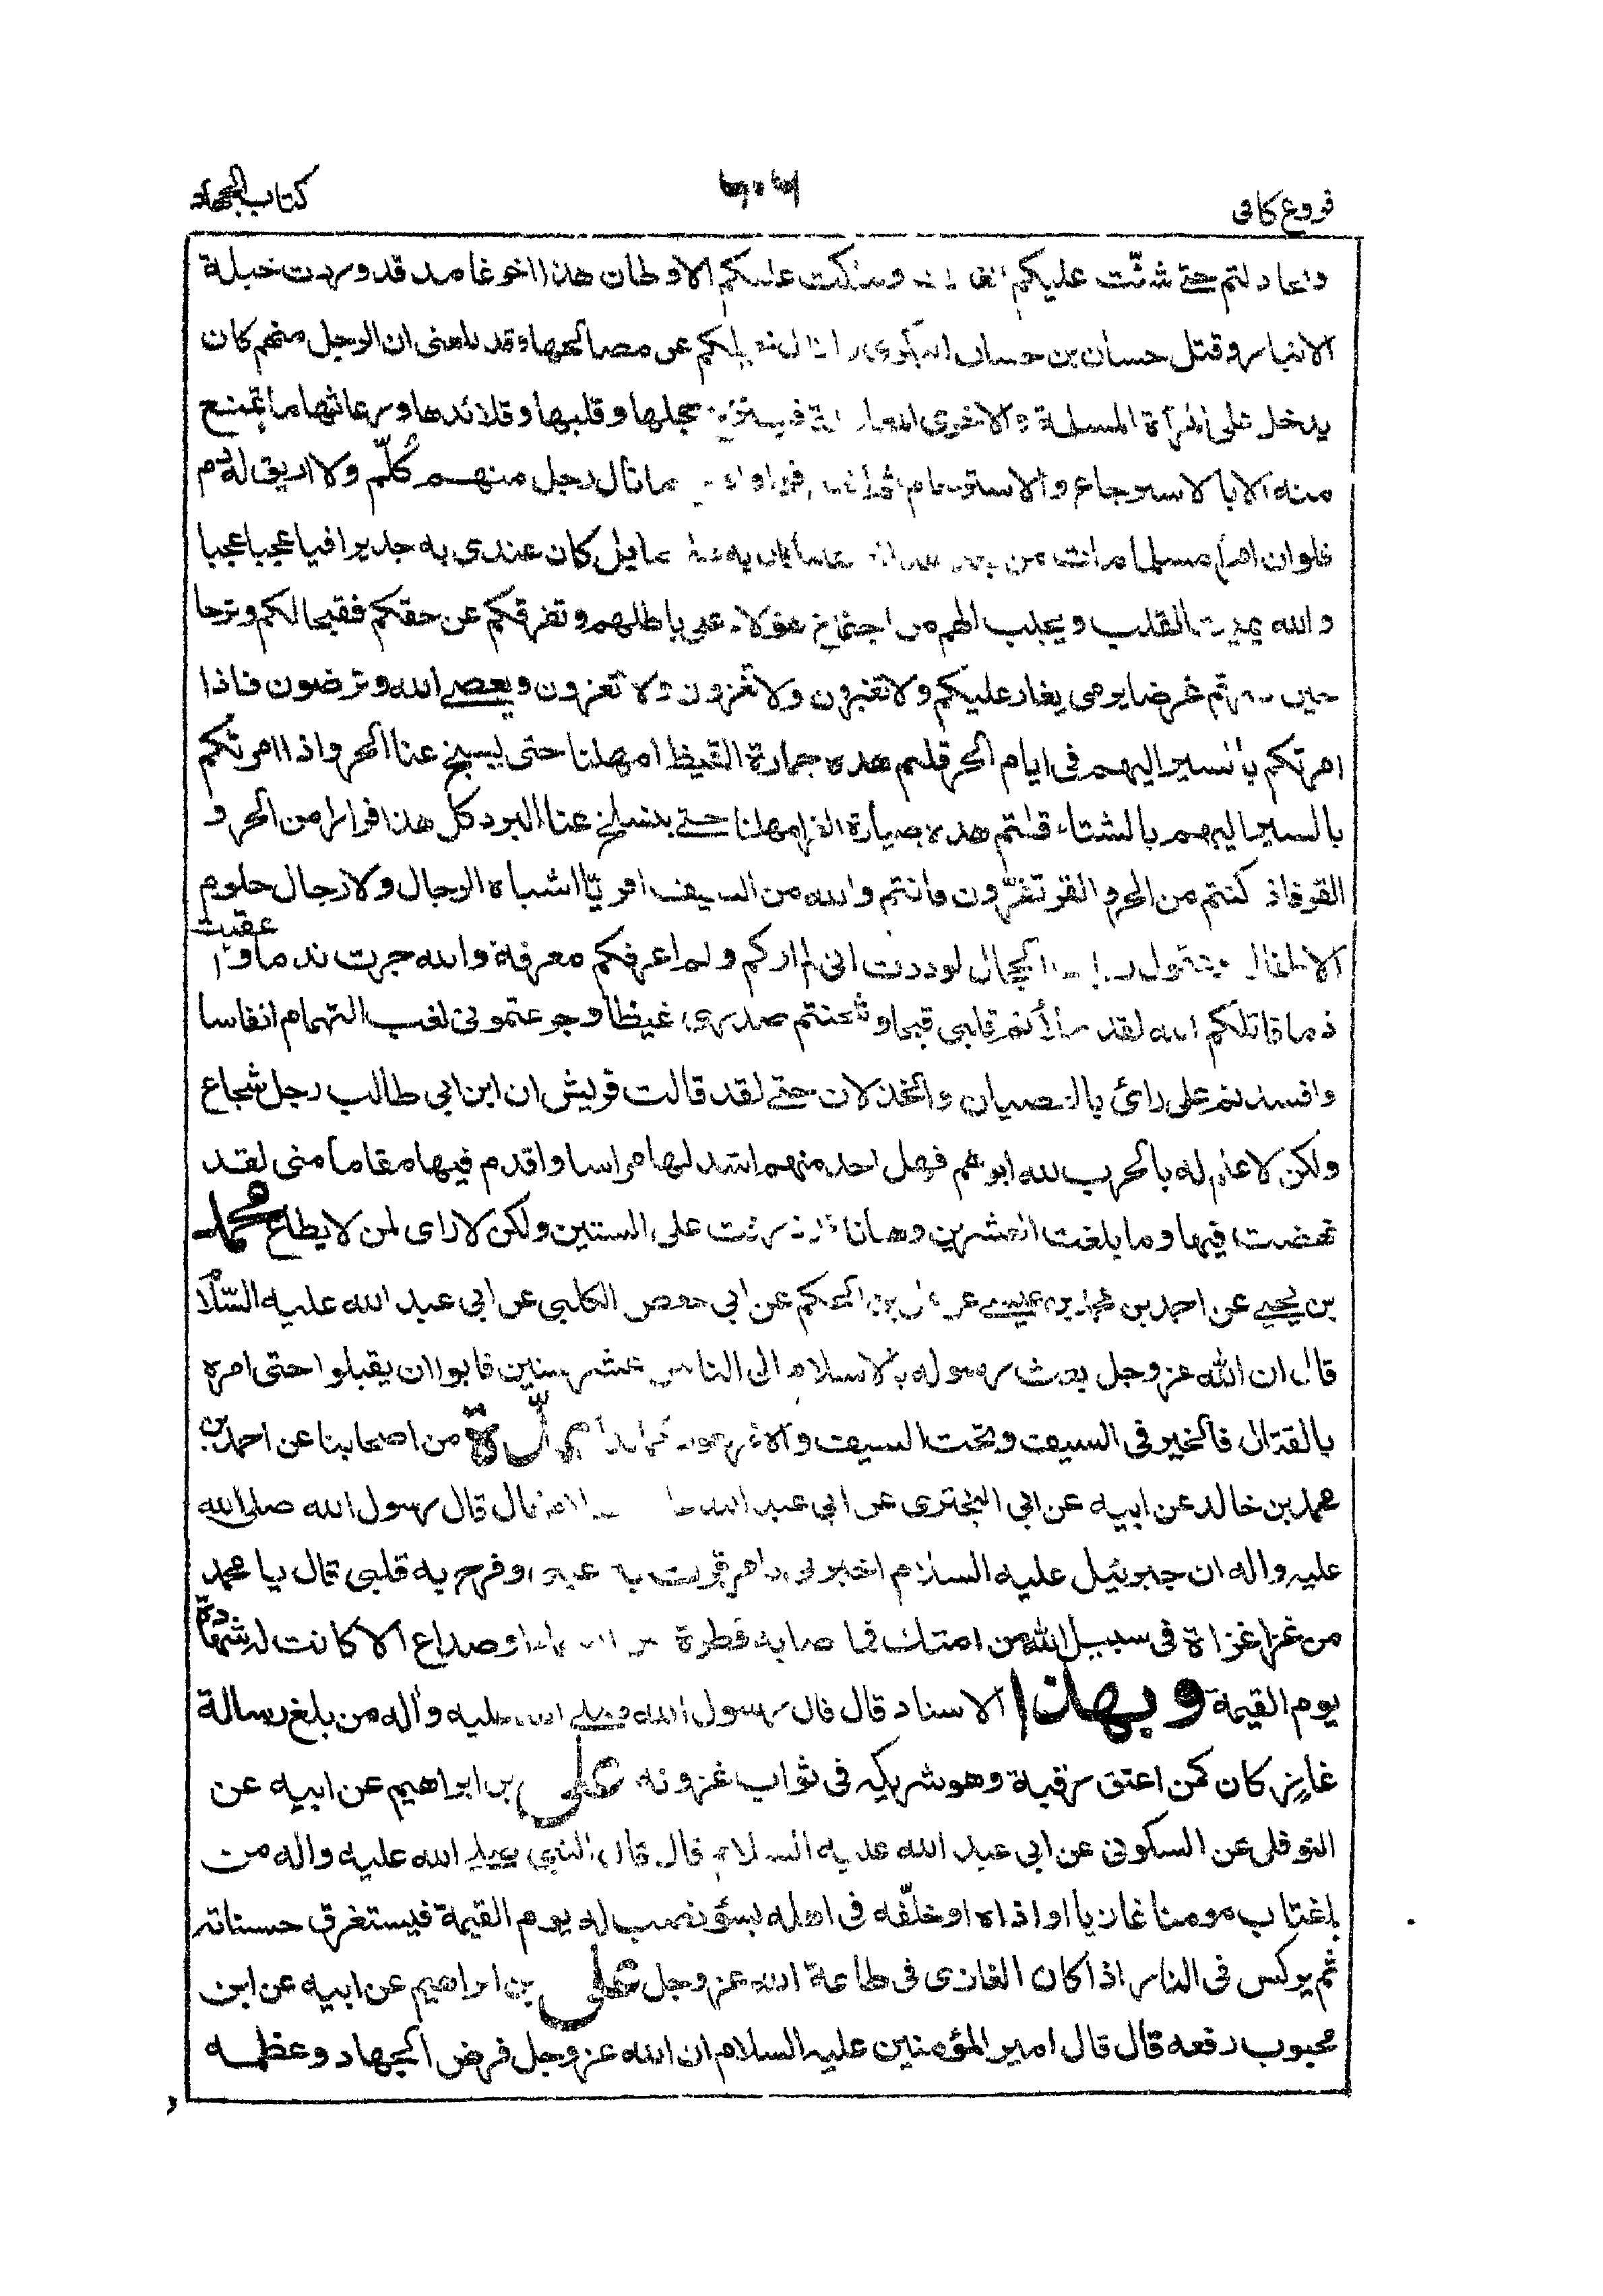 فروع كافى
كتاب الجهاد
حتى شنت عليكم وملكت عليكم الاوطان هذا اخو غامد قد وردت خيله
الانبار وقتل حسان بن حسان عن مصالحها وقد بلغنى ان الرجل منهم كان
يدخل على المرأة المسلمة والاخرى حجلها وقلبها وقلائدها ورعاثها ما تمنع
منه الا بالاسترجاع و ما نال رجل منهم كلم ولا اريق له دم
فلو ان امرأ مسلما مات من كان عندى به جديرا فيا عجبا عجبا
والله يميت القلب ويجلب الهم من اجتماع هؤلاء على باطلهم وتفرقكم عن حقكم فقبحا لكم وترحا
حين غرضا يرمى يغار عليكم ولا تغيرون ولا تغزون ويعصى الله وترضون فاذا
امرتكم بالسير اليهم فى ايام الحر قلتم هذه حمارة القيظ امهلنا حتى يسبخ عنا الحر واذا امرتكم
بالسير اليهم بالشتاء قلتم هذه صبارة القر امهلنا حتى ينسلخ عنا البرد كل هذا فرارا من الحر و
القر فاذ كنتم من الحر والقر تفرون فانتم والله من السيف افر يا اشباه الرجال ولا رجال حلوم
الاطفال وعقول الحجال لوددت انى لم اركم ولم اعرفكم معرفة والله جرت ندما و
اعقبت
ذما قاتلكم الله لقد قلبى قيحا وشحنتم صدرى غيظا وجرعتمونى نغب التهمام انفاسا
وافسدتم على رائى بالعصيان والخذلان حتى لقد قالت قريش ان ابن ابى طالب رجل شجاع
ولكن لا علم له بالحرب لله ابوهم فهل احد منهم اشد لها مراسا واقدم فيها مقاما منى لقد
نهضت فيها وما بلغت العشرين وها انا ذرفت على الستين ولكن لا راى لمن لا يطاع محمد
بن يحيى عن احمد بن محمد بن عيسى عن بن الحكم عن ابى حفص الكلبى عن ابى عبد الله عليه السلا
قال ان الله عز وجل بعث رسوله بالاسلام الى الناس عشر سنين فابوا ان يقبلوا حتى امره
بالقتال فالخير فى السيف وتحت السيف عدة من اصحابنا عن احمد بن
محمد بن خالد عن ابيه عن ابى البخترى عن ابى عبد الله قال قال رسول الله صلى الله
عليه واله ان جبرئيل عليه السلام اخبرنى بامر قرت به عينى وفرح به قلبى قال يا محمد
من غزا غزاة فى سبيل الله من امتك فما صابه قطرة من او صداع الا كانت له شهادة
يوم القيمة وبهذا الاسناد قال قال رسول الله صلى الله عليه واله من بلغ رسالة
غاز كان كمن اعتق رقبة وهو شريكه فى ثواب غزوته على بن ابراهيم عن ابيه عن
النوفلى عن السكونى عن ابى عبد الله عليه السلام قال قال النبى صلى الله عليه واله من
اغتاب مومنا غازيا او اذاه او خلفه فى اهله بسؤ نصب له يوم القيمة فيستغرق حسناته
ثم يركس فى النار اذا كان الغازى فى طاعة الله عز وجل على بن ابراهيم عن ابيه عن ابن
محبوب رفعه قال قال امير المؤمنين عليه السلام ان الله عز وجل فرض الجهاد وعظمه